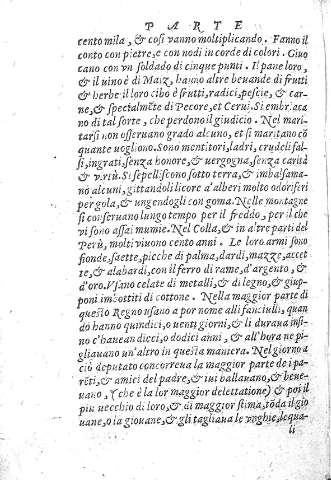 PARTE
cento mila, & cosi vanno moltiplicando. Fanno il
conto con pietre, e con nodi in corde di colori. Giuo
cano con vn soldado di cinque punti. Il pane loro,
& il uino è di Maiz, hanno altre beuande di frutti
& herbe: il loro cibo è frutti, radici, pescie, & car-
ne, & spetialmẽte di Pecore, et Cerui. Si embriaca
no di tal sorte, che perdono il giudicio. Nel mari-
tarsi non osseruano grado alcuno, et si maritano cõ
quante uogliono. Sono mentitori, ladri, crudeli fal-
si, ingrati, senza honore, & uergogna, senza carità
& virtù. Si sepelliscono sotto terra, & imbalsama-
no alcuni, gittandoli licore d'alberi molto odoriferi
per gola, & ungendogli con goma. Nelle montagne
si conseruano lungo tempo per il freddo, per il che
vi sono assai mumie. Nel Colla, & in altre parti del
Perù, molti viuono cento anni. Le loro armi sono
fionde, saette, picche di palma, dardi, mazze, accet
te, & alabardi, con il ferro di rame, d'argento, &
d'oro. Vsano celate di metalli, & di legno, & giup-
poni imbottiti di cottone. Nella maggior parte di
questo Regno usano a por nome alli fanciulli, quan
do hanno quindici, o uenti giorni, & li duraua infi-
no c'hauean dieci, o dodici anni, & all'hora ne pi-
gliauano un'altro in questa maniera. Nel giorno a
ciò deputato concorreua la maggior parte de i pa-
rẽti, & amici del padre, & iui ballauano, & beue-
uano, (che è la lor maggior delettatione) & poi il
piu uecchio di loro, & di maggior stima, tõda il gio
uane, o la giouane, & gli tagliaua le vnghie, lequa-
li